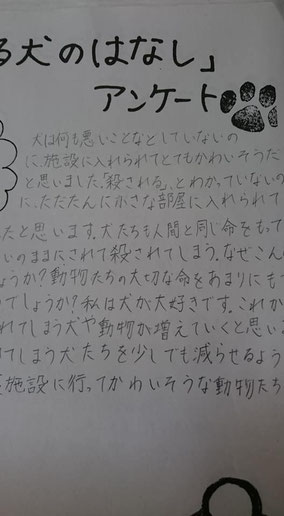 る犬のはなし」
アンケート
犬は何も悪いことなどしていないの
に、施設に入れられてとてもかわいそうだ
と思いました。「殺される」、とわかっていないの
に、ただたんに小さな部屋に入れられて
たと思います。犬たちも人間と同じ命をもって
いのままにされて殺されてしまう。なぜこん
ょうか?動物たちの大切な命をあまりにもて
でしょうか?私は犬が大好きです。これか
れてしまう犬や動物が増えていくと思い
てしまう犬たちを少しでも減らせるよう
施設に行ってかわいそうな動物たち